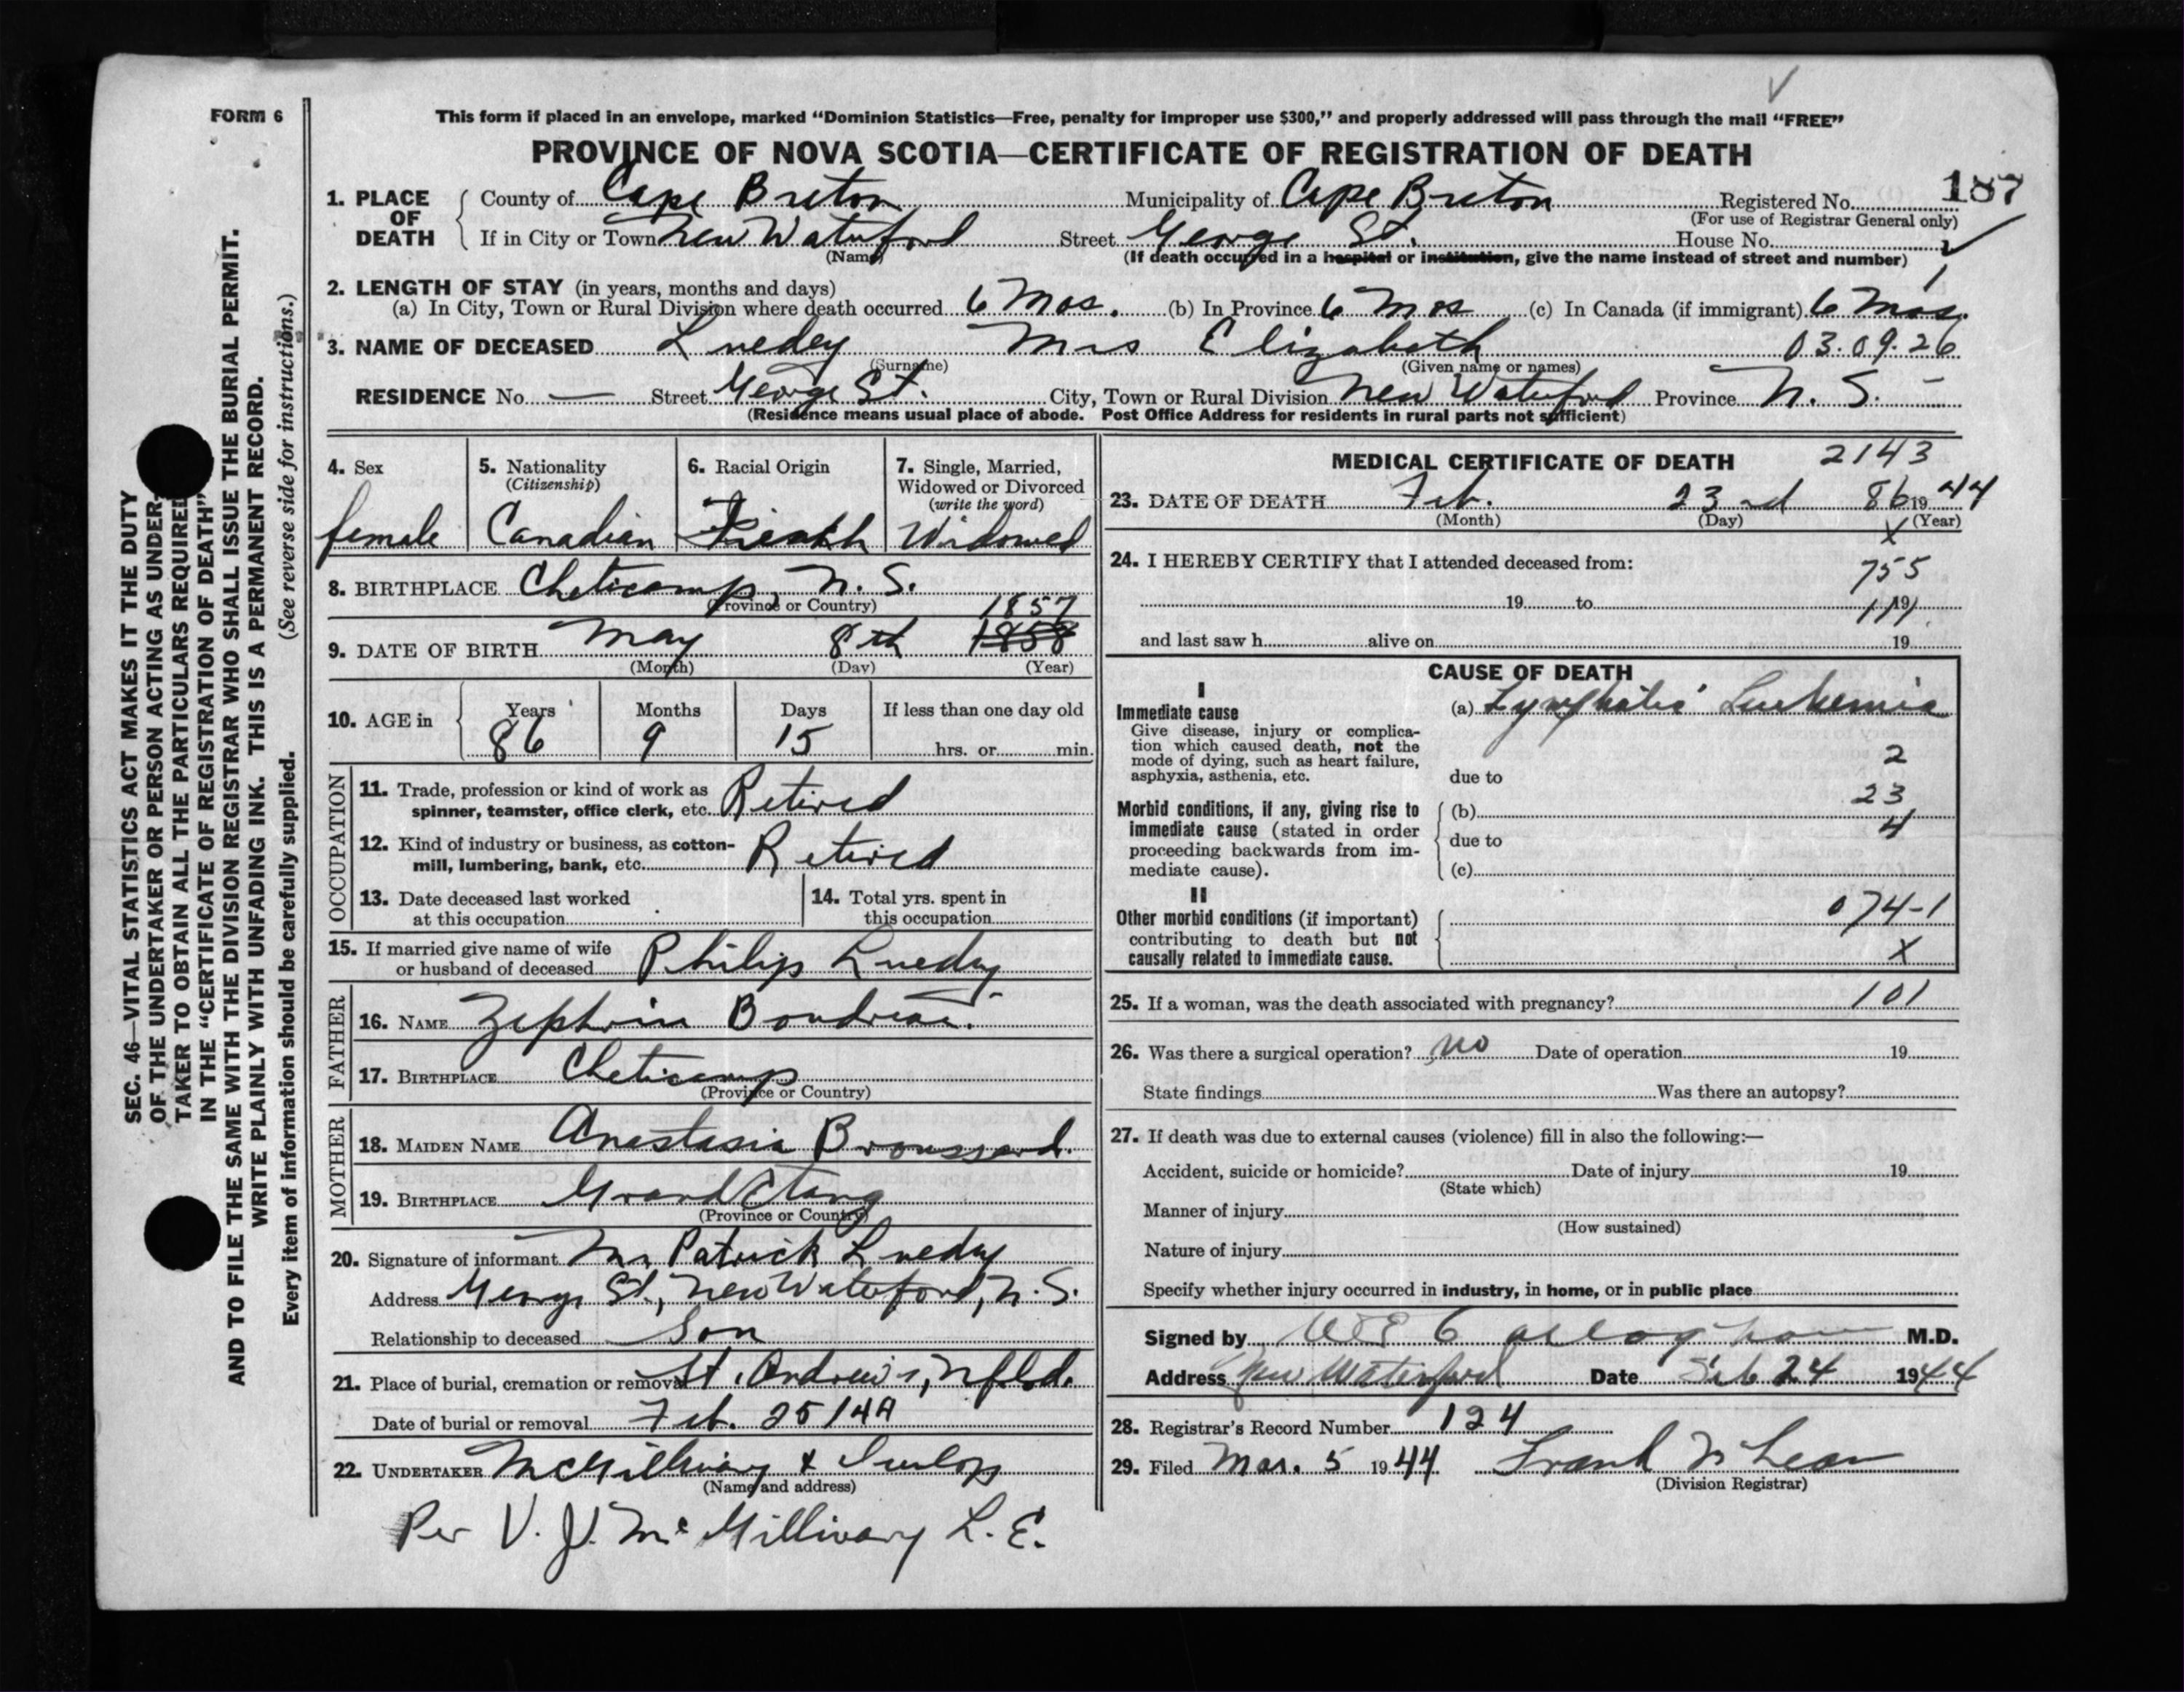 FORM 6
This form if placed in an envelope, marked “Dominion Statistics—Free, penalty for improper use $300,” and properly addressed will pass through the mail “FREE”
PROVINCE OF NOVA SCOTIA—CERTIFICATE OF REGISTRATION OF DEATH
187
1. PLACE OF DEATH County of Cape Breton Municipality of Cape Breton Registered No.
(For use of Registrar General only)
If in City or Town New Waterford Street George St. House No.
(Name) (If death occurred in a hospital or institution, give the name instead of street and number)
2. LENGTH OF STAY (in years, months and days)
(a) In City, Town or Rural Division where death occurred 6 Mos. (b) In Province 6 Mos (c) In Canada (if immigrant) 6 Mos.
3. NAME OF DECEASED Luedey Mrs Elizabeth 03.09.26
(Surname) (Given name or names)
RESIDENCE No. — Street George St. City, Town or Rural Division New Waterford Province N. S.
(Residence means usual place of abode. Post Office Address for residents in rural parts not sufficient)
4. Sex
female
5. Nationality
(Citizenship)
Canadian
6. Racial Origin
French
7. Single, Married,
Widowed or Divorced
(write the word)
Widowed
8. BIRTHPLACE Cheticamp, N. S.
(Province or Country)
1857
9. DATE OF BIRTH May 8th 1858
(Month) (Day) (Year)
10. AGE in Years Months Days If less than one day old
86 9 15 hrs. or min.
OCCUPATION
11. Trade, profession or kind of work as
spinner, teamster, office clerk, etc. Retired
12. Kind of industry or business, as cotton-
mill, lumbering, bank, etc. Retired
13. Date deceased last worked
at this occupation
14. Total yrs. spent in
this occupation
15. If married give name of wife
or husband of deceased Philip Luedey
FATHER
16. NAME Zephrin Boudreau.
17. BIRTHPLACE Cheticamp
(Province or Country)
MOTHER
18. MAIDEN NAME Anastasia Broussard.
19. BIRTHPLACE Grand Etang
(Province or Country)
20. Signature of informant Mr. Patrick Luedey
Address George St., New Waterford, N. S.
Relationship to deceased Son
21. Place of burial, cremation or removal St. Andrew's, Nfld.
Date of burial or removal Feb. 25/44
22. UNDERTAKER McGillivary & Dunlop
(Name and address)
Per V. J. McGillivary L. E.
MEDICAL CERTIFICATE OF DEATH 2143
23. DATE OF DEATH Feb. 23rd 86 1944
(Month) (Day) (Year)
X
24. I HEREBY CERTIFY that I attended deceased from:
755
19 to 19
111
and last saw h alive on 19
CAUSE OF DEATH
I
Immediate cause
Give disease, injury or complica-
tion which caused death, not the
mode of dying, such as heart failure,
asphyxia, asthenia, etc.
(a) Lymphatic Leukemia
2
due to
23
Morbid conditions, if any, giving rise to
immediate cause (stated in order
proceeding backwards from im-
mediate cause).
(b)
4
due to
(c)
II
Other morbid conditions (if important)
contributing to death but not
causally related to immediate cause.
074-1
X
25. If a woman, was the death associated with pregnancy? 101
26. Was there a surgical operation? no Date of operation 19
State findings Was there an autopsy?
27. If death was due to external causes (violence) fill in also the following:—
Accident, suicide or homicide? Date of injury 19
(State which)
Manner of injury
(How sustained)
Nature of injury
Specify whether injury occurred in industry, in home, or in public place
Signed by M.D.
Address New Waterford Date Feb 24 1944
28. Registrar's Record Number 124
29. Filed Mar. 5 1944 Frank McLean
(Division Registrar)
SEC. 46—VITAL STATISTICS ACT MAKES IT THE DUTY
OF THE UNDERTAKER OR PERSON ACTING AS UNDER-
TAKER TO OBTAIN ALL THE PARTICULARS REQUIRED
IN THE “CERTIFICATE OF REGISTRATION OF DEATH”
AND TO FILE THE SAME WITH THE DIVISION REGISTRAR WHO SHALL ISSUE THE BURIAL PERMIT.
WRITE PLAINLY WITH UNFADING INK. THIS IS A PERMANENT RECORD.
Every item of information should be carefully supplied. (See reverse side for instructions.)